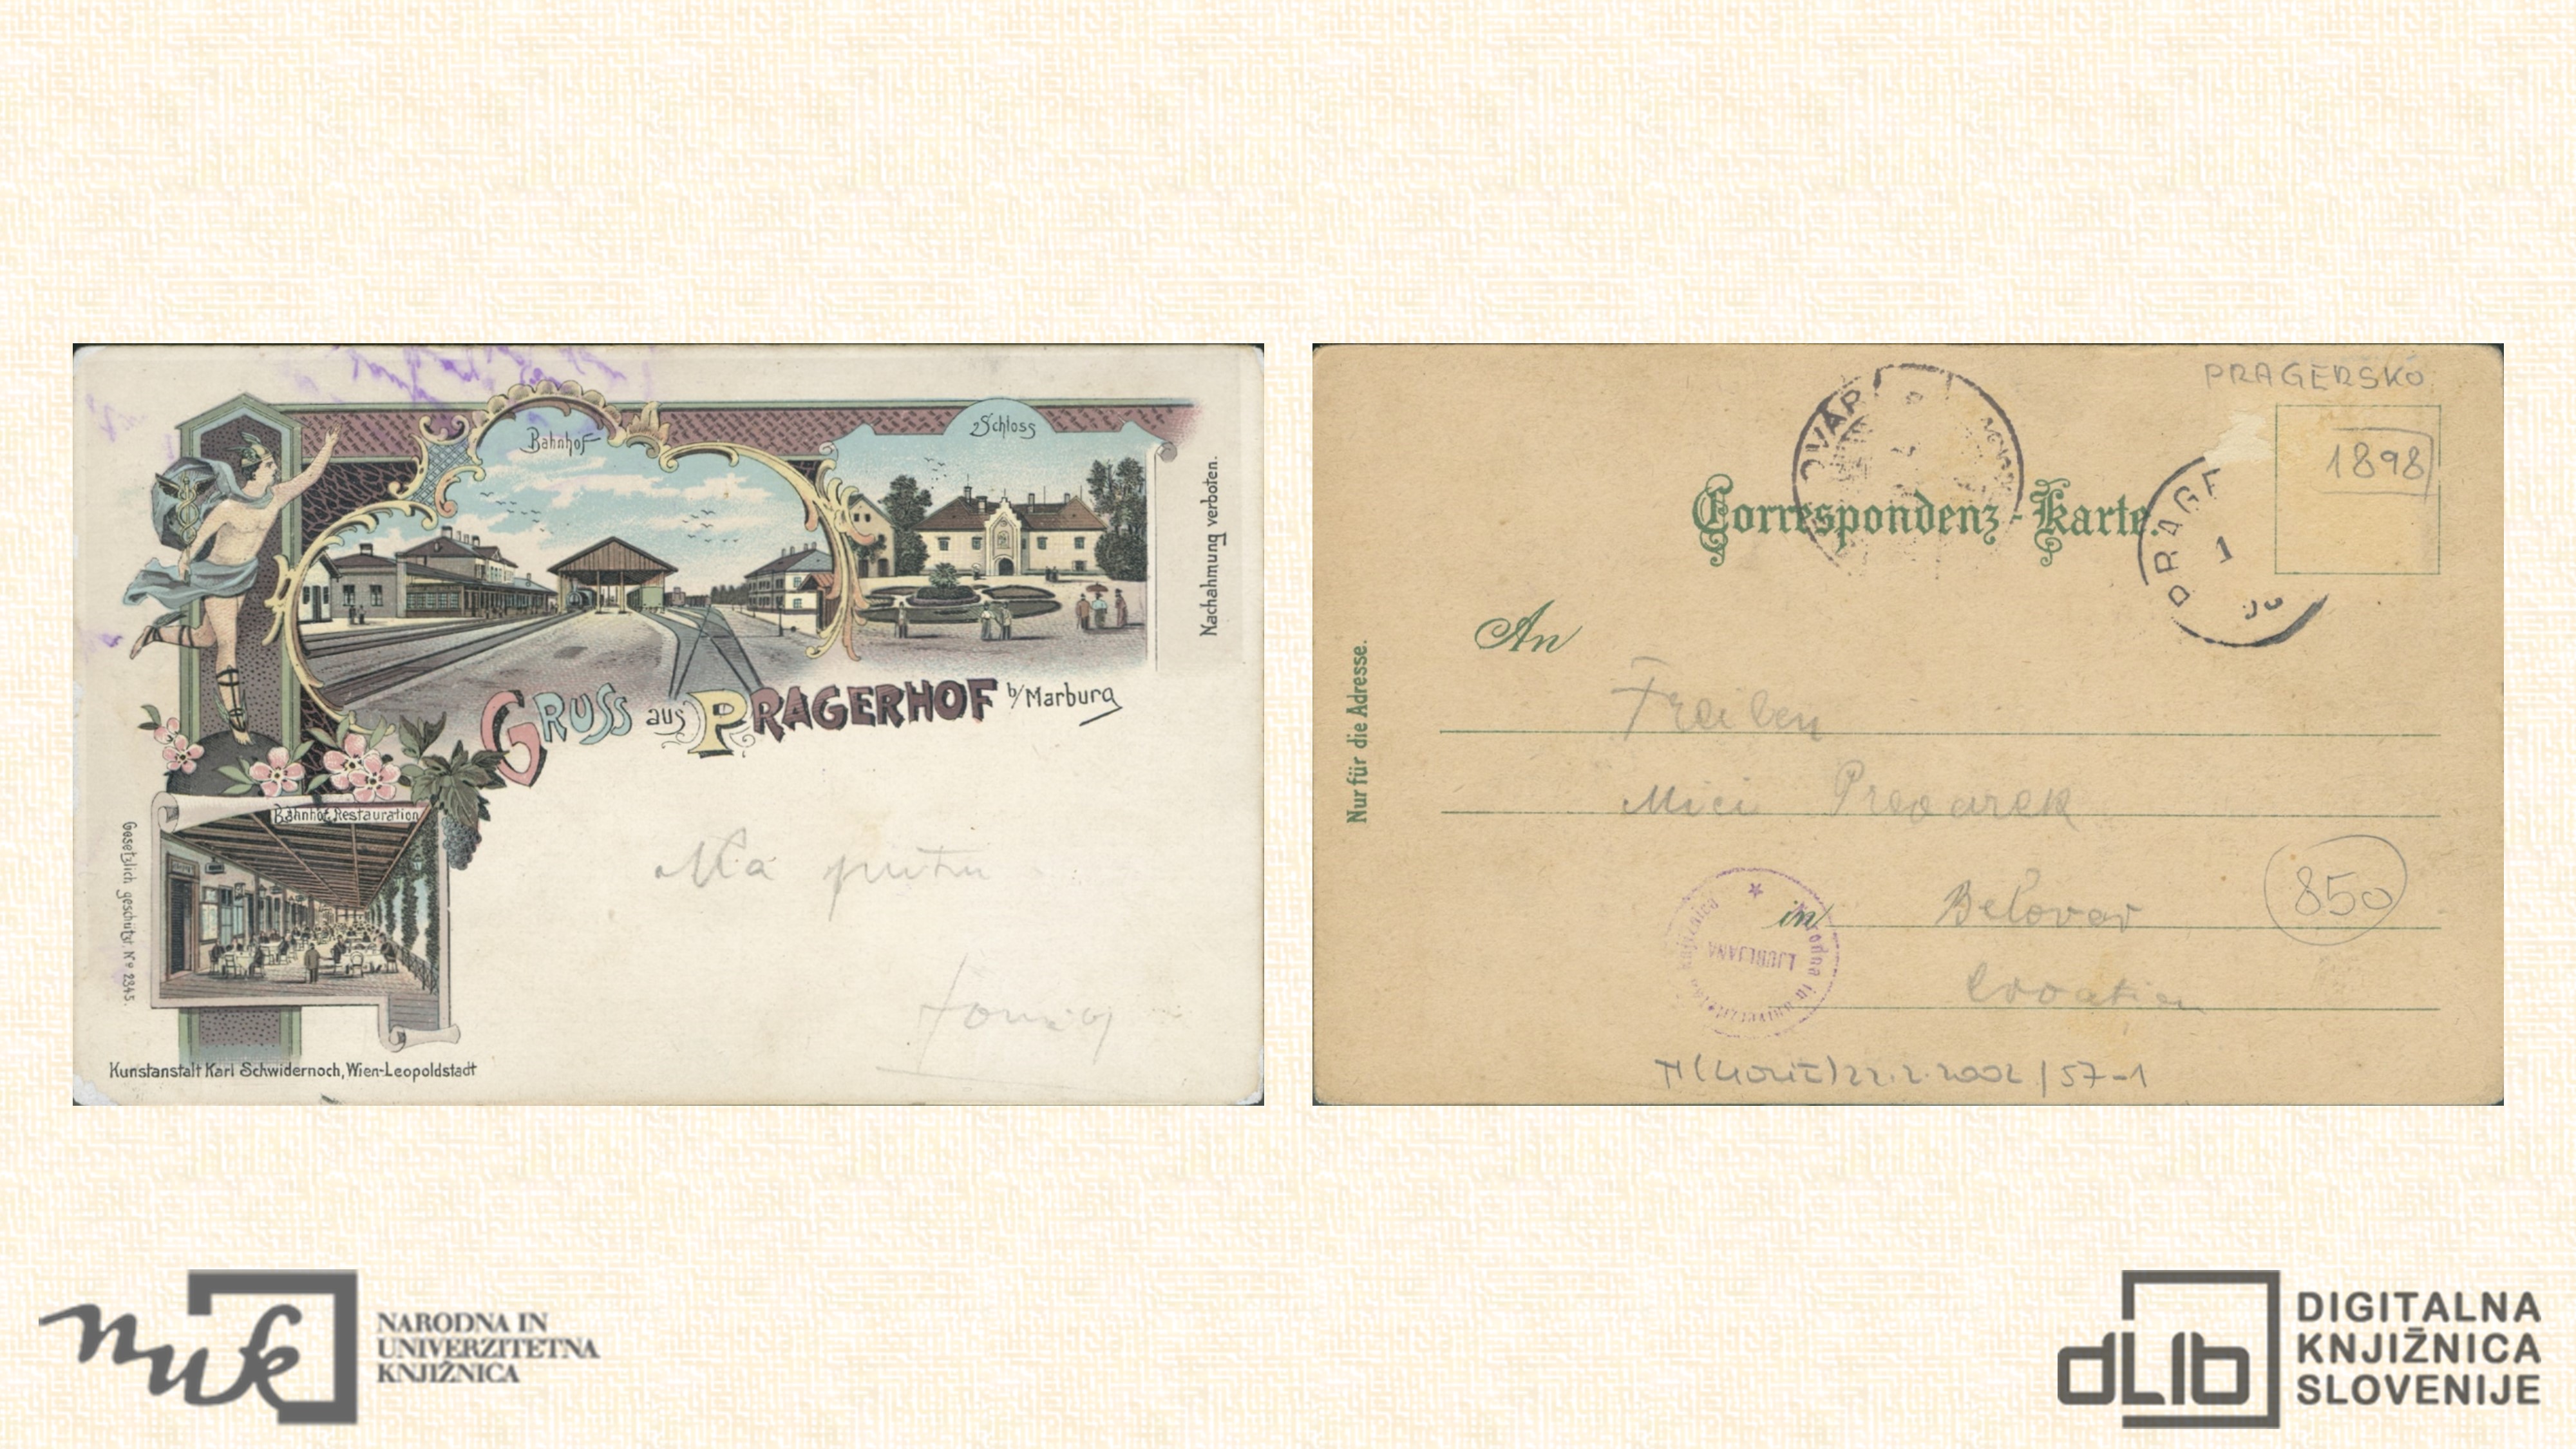 Bahnhof
Schloss
Nachahmung verboten.
GRUSS aus PRAGERHOF b/Marburg
Bahnhof, Restauration
Gesetzlich geschützt Nº 2345.
Na putu
Kunstanstalt Karl Schwidernoch, Wien-Leopoldstadt
PRAGERSKO
1898
OVAR
PRAGE
1
Correspondenz-Karte.
An
Nur für die Adresse.
Mici
850
in Belovar
Croatien
Narodna in univerzitetna
LJUBLJANA
22.2.2002 / 57-1
NARODNA IN
UNIVERZITETNA
KNJIŽNICA
nuk
dLib
DIGITALNA
KNJIŽNICA
SLOVENIJE